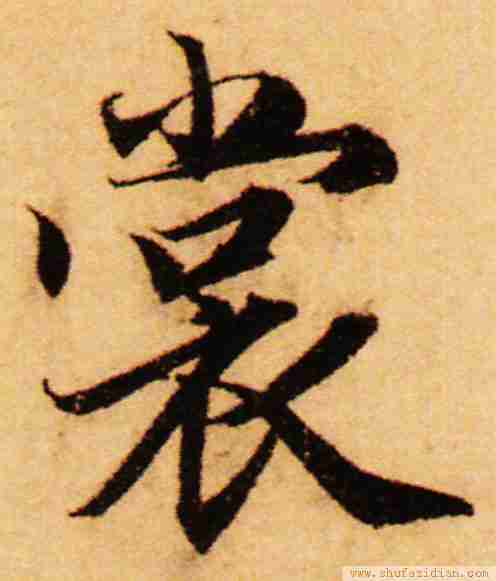 裳
www.shufazidian.com